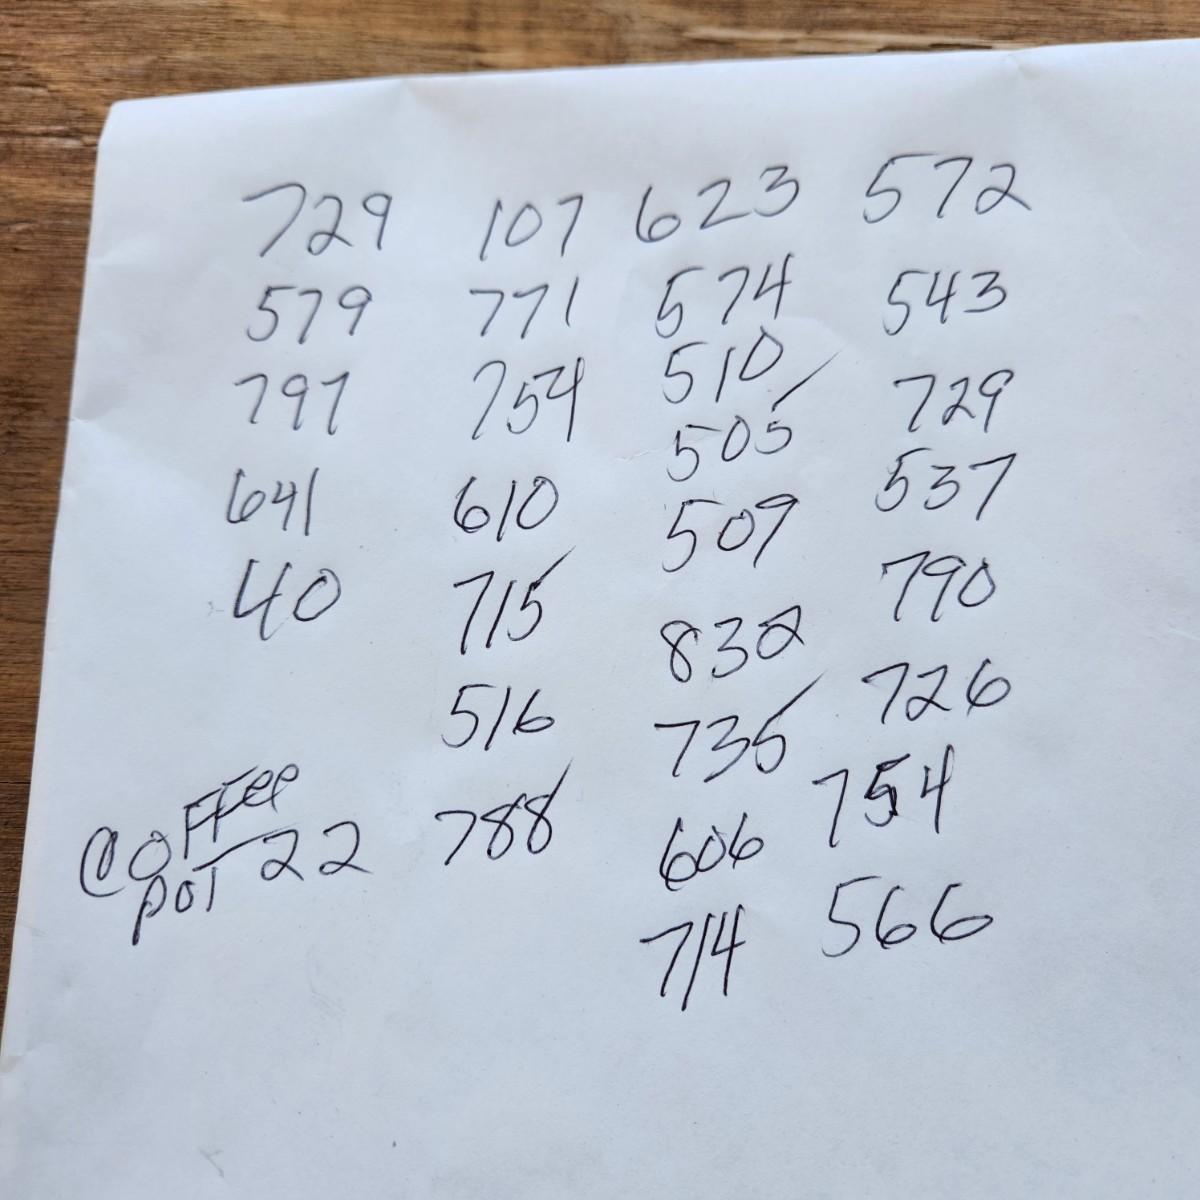 729 107 623 572
579 771 574 543
797 754 510 729
641 610 505 537
40 715 509 790
516 832 726
Coffee pot - 22 788 735 754
606 566
714